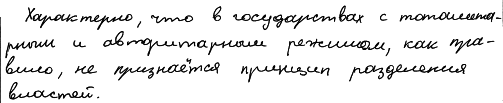 Характерно, что в государствах с тоталита-
рным и авторитарным режимом, как пра-
вило, не признаётся принцип разделения
властей.